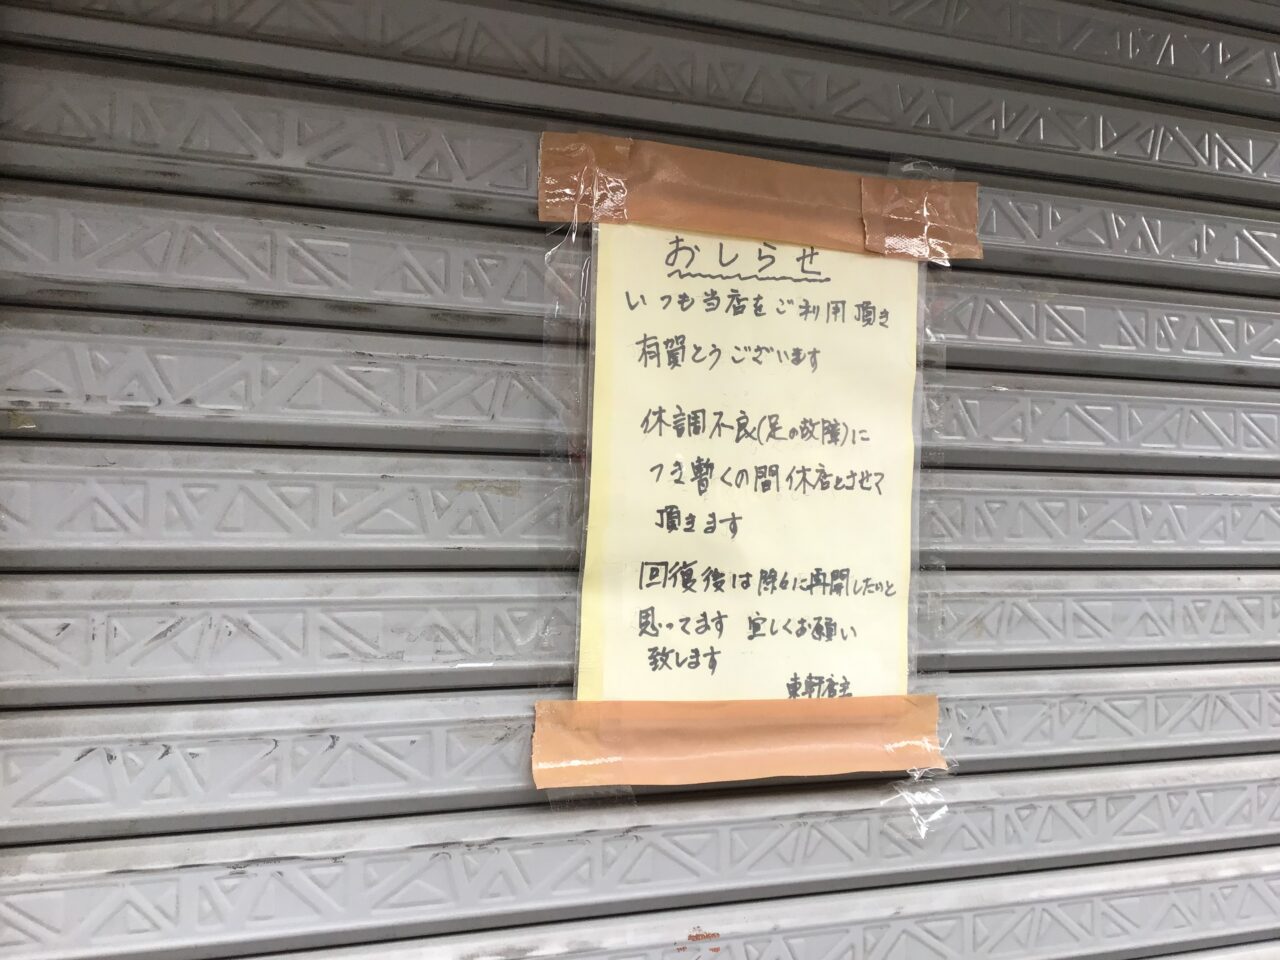 おしらせ
いつも当店をご利用頂き
有賀とうございます
体調不良(足の故障)に
つき暫くの間休店とさせて
頂きます
回復後は除々に再開したいと
思ってます 宜しくお願い
致します
東軒店主